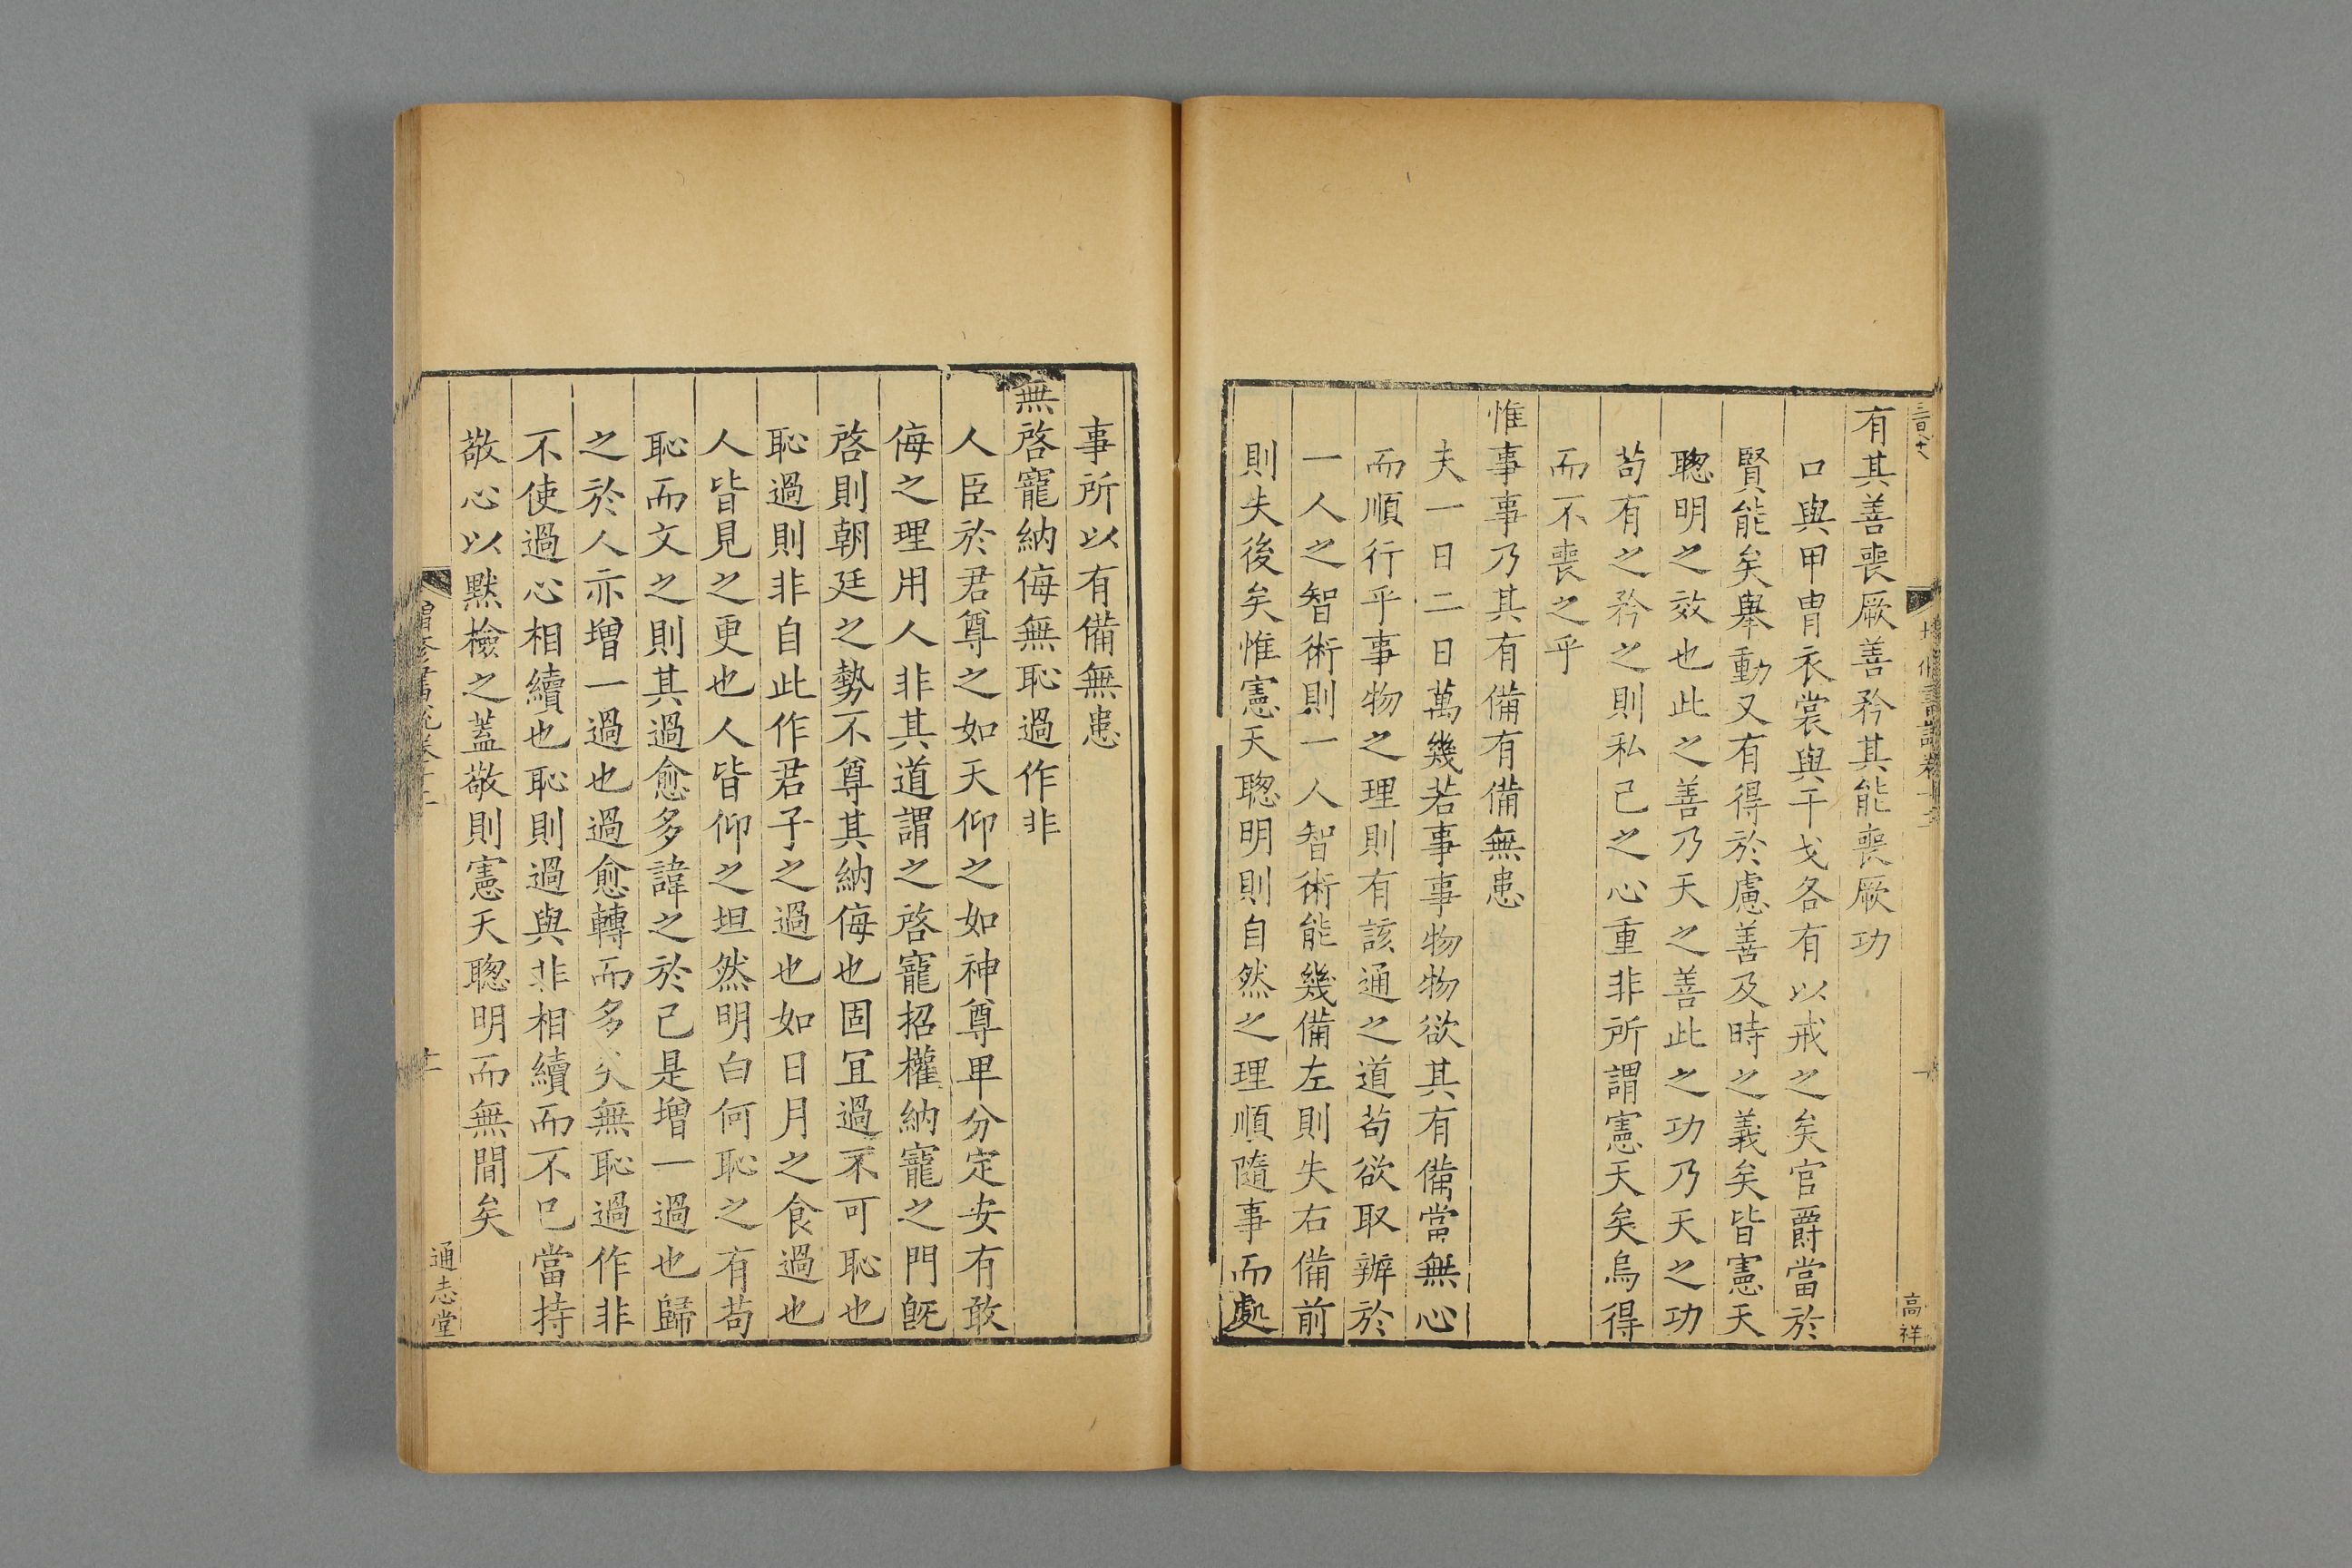 有其善喪厥善矜其能喪厥功
口與甲胄衣裳與干戈各有以戒之矣官爵當於
賢能矣舉動又有得於慮善及時之義矣皆憲天
聰明之效也此之善乃天之善此之功乃天之功
苟有之矜之則私己之心重非所謂憲天矣烏得
而不喪之乎
惟事事乃其有備有備無患
夫一日二日萬幾若事事物物欲其有備當無心
而順行乎事物之理則有該通之道苟欲取辦於
一人之智術則一人智術能幾備左則失右備前
則失後矣惟憲天聰明則自然之理順隨事而處
高祥
事所以有備無患
無啓寵納侮無恥過作非
人臣於君尊之如天仰之如神尊卑分定安有敢
侮之理用人非其道謂之啓寵招權納寵之門旣
啓則朝廷之勢不尊其納侮也固冝過不可恥也
恥過則非自此作君子之過也如日月之食過也
人皆見之更也人皆仰之坦然明白何恥之有苟
恥而文之則其過愈多諱之於己是增一過也歸
之於人亦增一過也過愈轉而多矣無恥過作非
不使過心相續也恥則過與非相續而不已當持
敬心以黙檢之蓋敬則憲天聰明而無間矣
通志堂